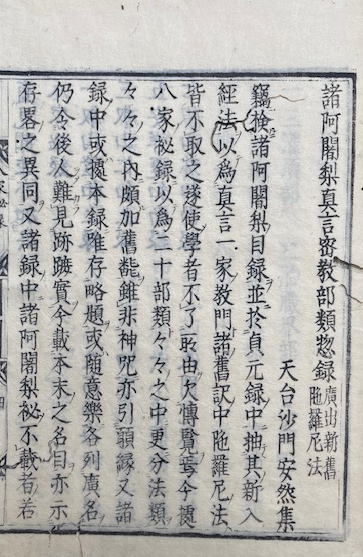 諸阿闍梨真言密教部類惣録廣出新舊陁羅尼法
天台沙門安然集
竊撿諸阿闍梨目録並於貞元録中抽其新入
經法以為真言一家教門諸舊訳中陁羅尼法
皆不取之遂使學者不了取由欠博覧焉今據
八家祕録以為二十部類々々之中更分法類
々々之内頗加舊説雖非神呪亦引類縁又諸
録中或據本録唯存略題或随意樂各列廣名
仍令後人難見跡蹤實今載本末之名目亦示
存畧之異同又諸録中諸阿闍梨祕不載者若